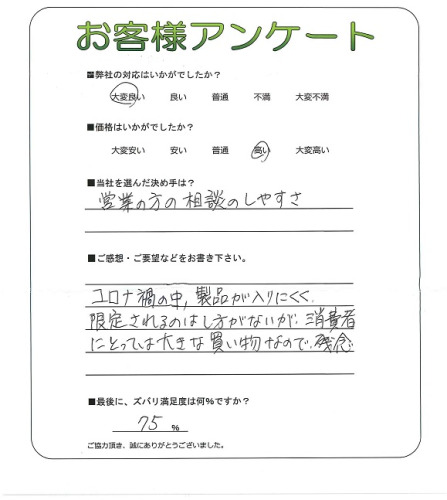 お客様アンケート
■弊社の対応はいかがでしたか？
大変良い 良い 普通 不満 大変不満
■価格はいかがでしたか？
大変安い 安い 普通 高い 大変高い
■当社を選んだ決め手は？
営業の方の相談のしやすさ
■ご感想・ご要望などをお書き下さい。
コロナ禍の中,製品が入りにくく.
限定されるのはし方がないが.消費者
にとっては大きな買い物なので.残念
■最後に、ズバリ満足度は何%ですか？
75 %
ご協力頂き、誠にありがとうございました。